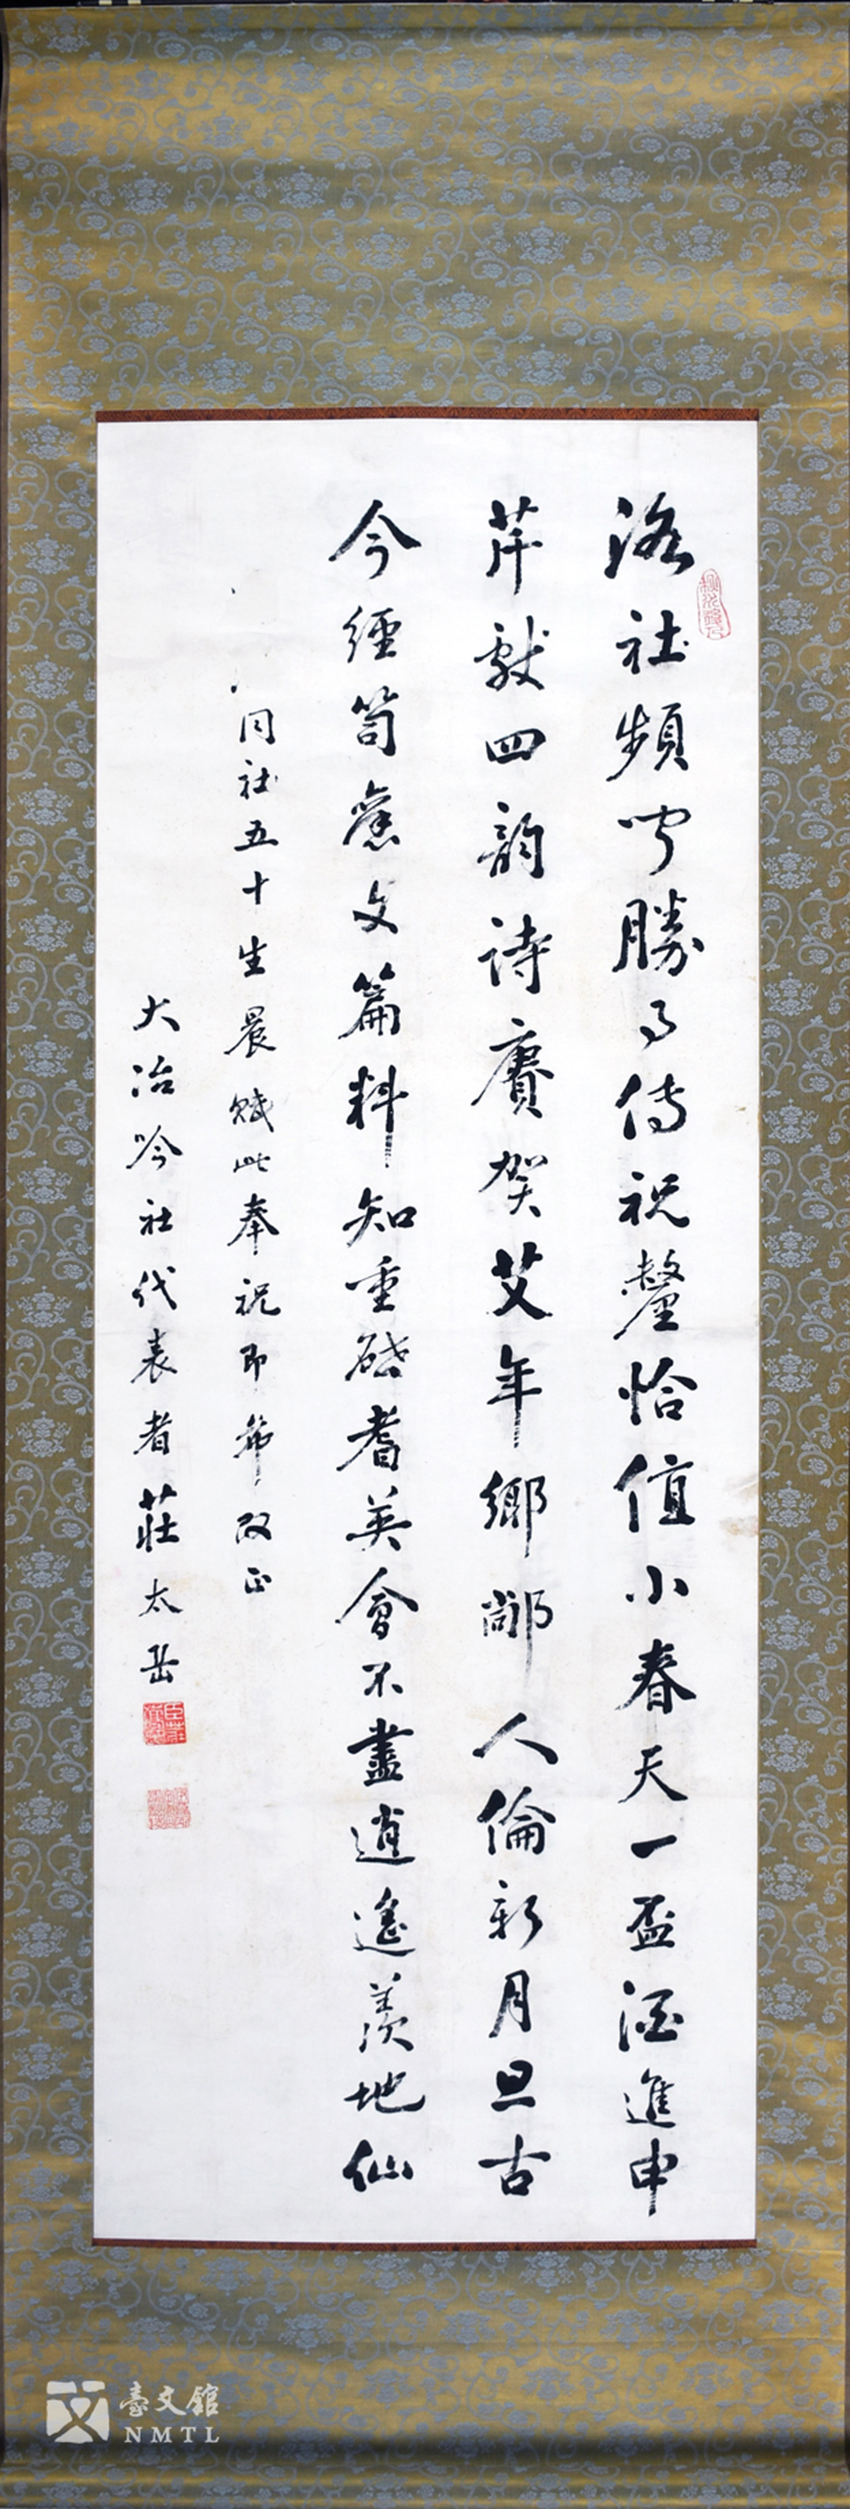 洛社頻聞勝事傳祝釐恰值小春天一盃酒進申
芹獻四韵詩賡賀艾年鄉鄰人倫新月旦古
今經笥舊文篇料知重啟耆英會不盡逍遙羨地仙
同社五十生晨賦此奉祝即希改正
大冶吟社代表者莊太岳
臺文館
NMTL